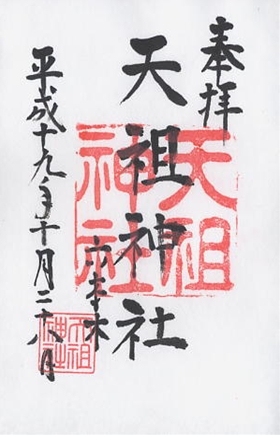 奉拝
天祖神社
天祖
神社
六本木
平成十九年十月二十八日
天祖
神社